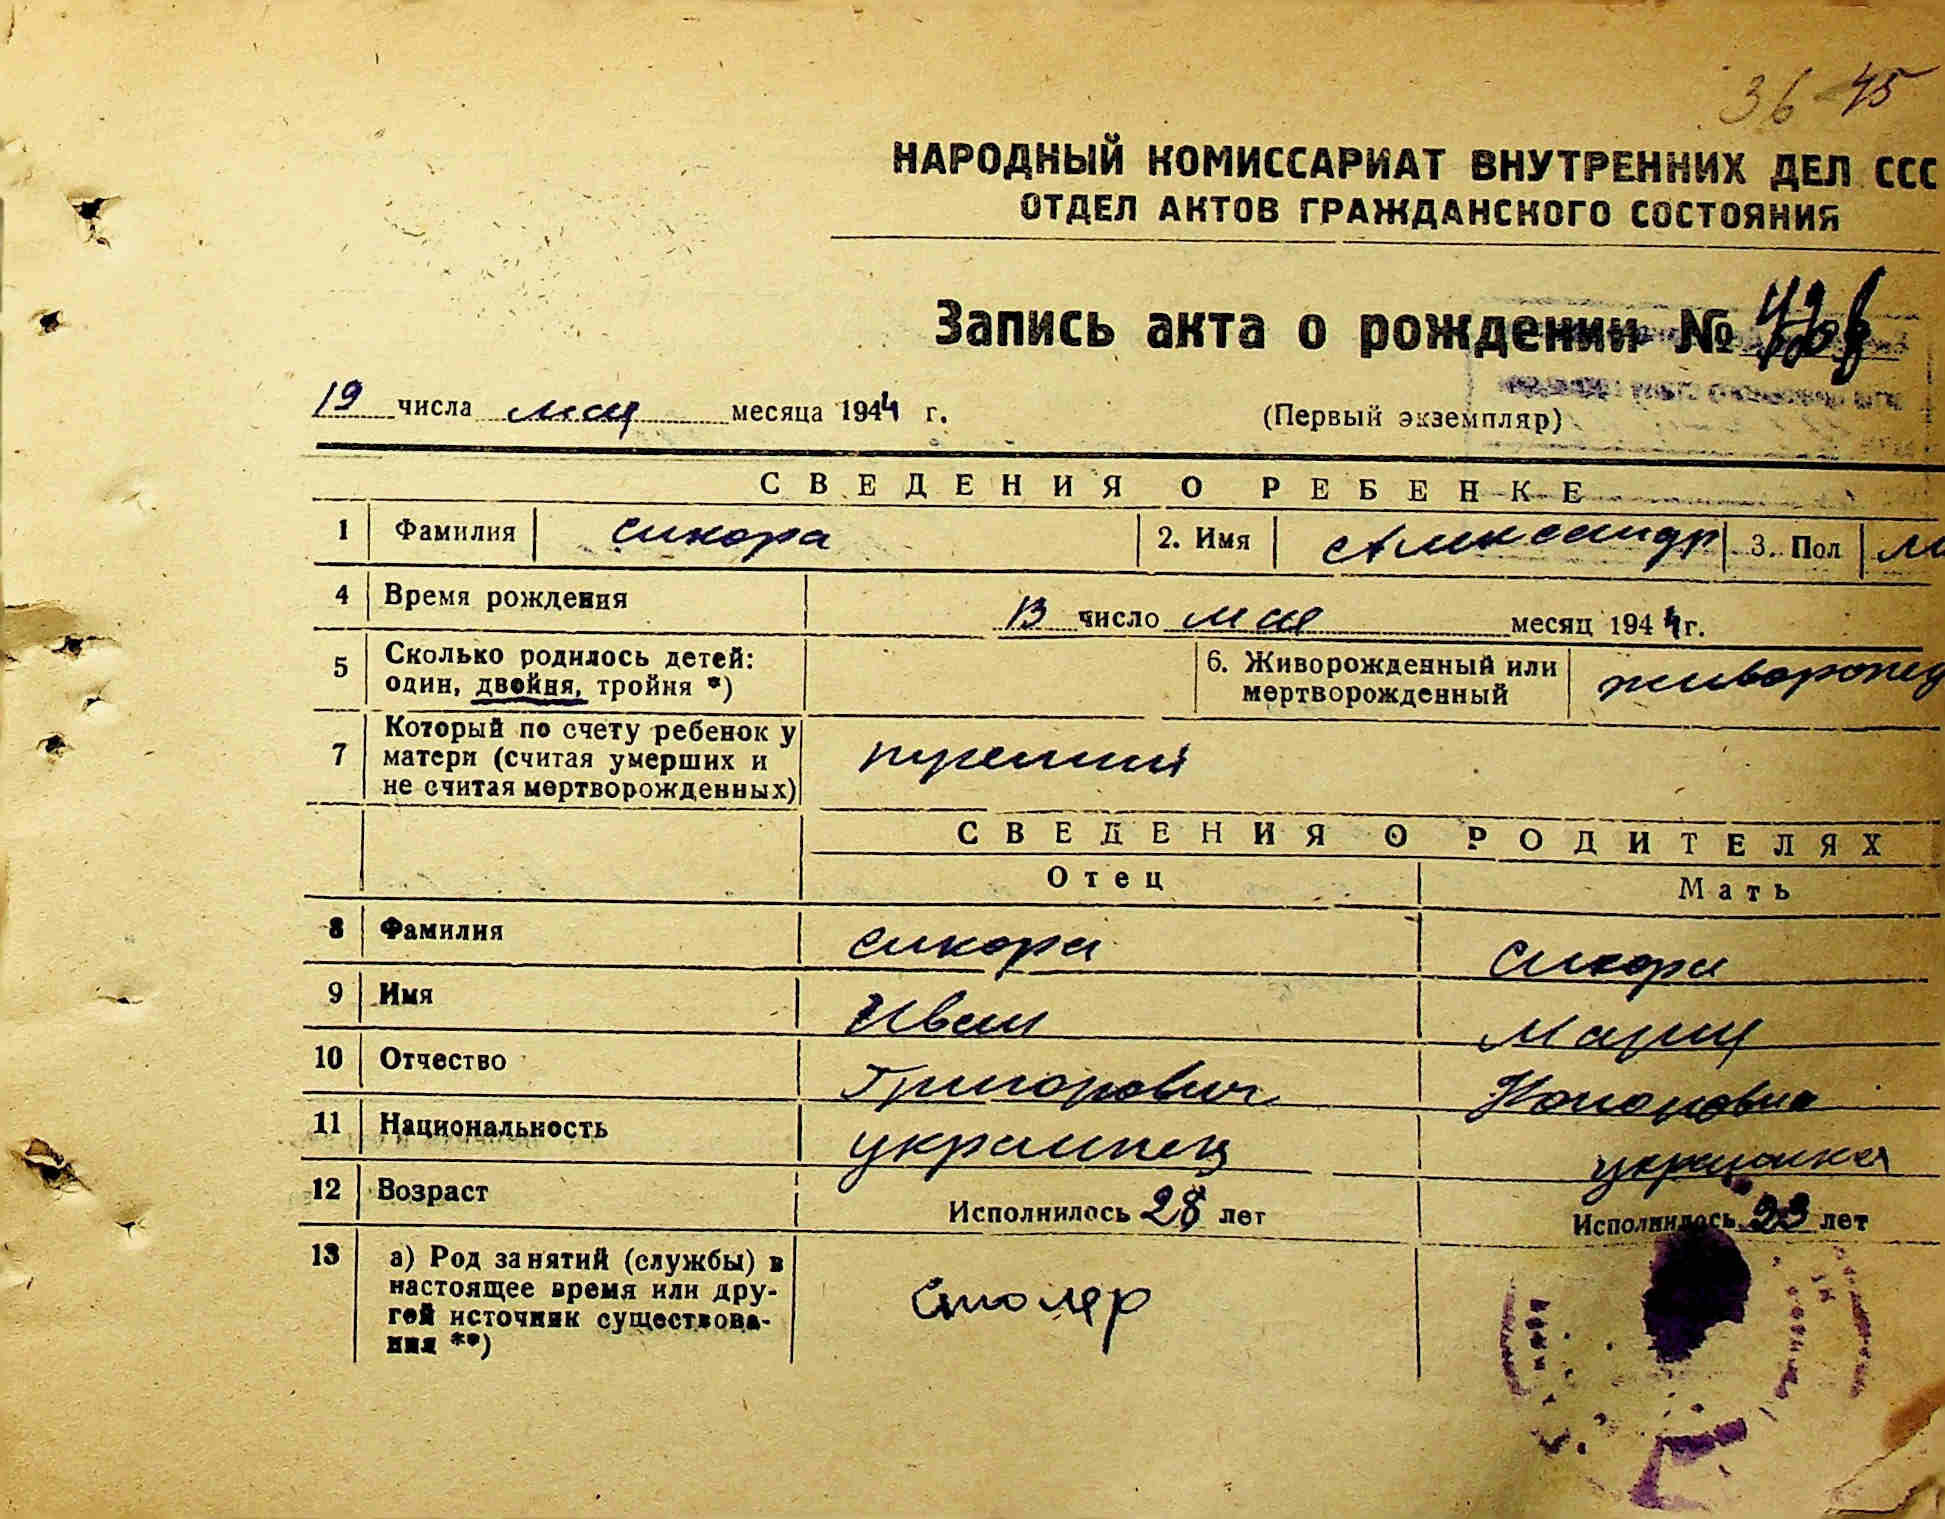 36 45
НАРОДНЫЙ КОМИССАРИАТ ВНУТРЕННИХ ДЕЛ ССС
ОТДЕЛ АКТОВ ГРАЖДАНСКОГО СОСТОЯНИЯ
Запись акта о рождении №
19 числа мая месяца 1944 г. (Первый экземпляр)
СВЕДЕНИЯ О РЕБЕНКЕ
1 Фамилия Сикора 2. Имя Александр 3. Пол м
4 Время рождения 13 число мая месяц 1944 г.
5 Сколько родилось детей: один, двойня, тройня *) 6. Живорожденный или мертворожденный живорожд
7 Который по счету ребенок у матери (считая умерших и не считая мертворожденных)
СВЕДЕНИЯ О РОДИТЕЛЯХ
Отец Мать
8 Фамилия Сикора Сикора
9 Имя Иван Мария
10 Отчество Григорович Кононовна
11 Национальность украинец украинка
12 Возраст Исполнилось 28 лет Исполнилось 23 лет
13 а) Род занятий (службы) в
настоящее время или дру-
гой источник существова-
ния **)
Столяр